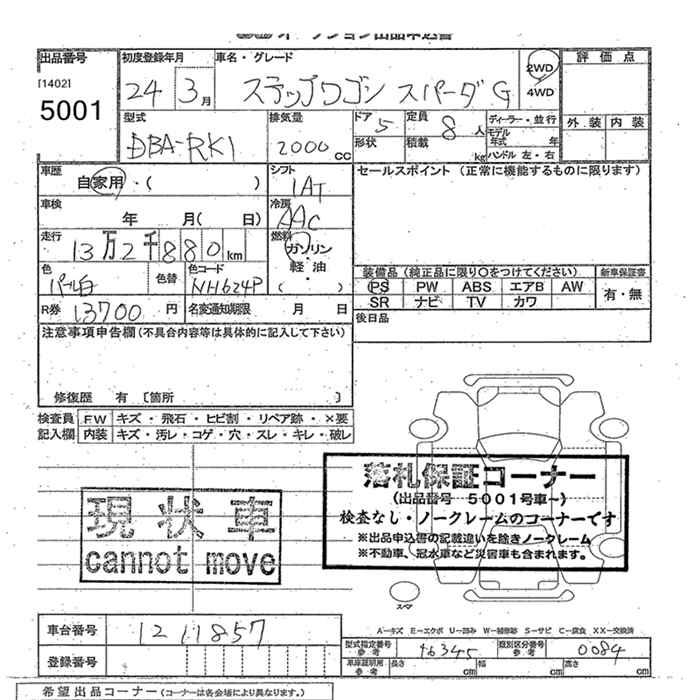 出品番号 初度登録年月 車名・グレード 2WD 評価点
[1402] 24 3月 ステップワゴン スパーダG 4WD
5001 型式 排気量 ドア 5 定員 8人 ディーラー・並行 外装 内装
DBA-RK1 2000cc 形状 積載 kg モデル年式 年
ハンドル 左・右
車歴 自家用・( ) シフト 1AT セールスポイント (正常に機能するものに限ります)
車検 年 月( 日) 冷房 AAC
走行 13万2千880km 燃料 ガソリン
軽油・( )
色 パール白 色替 色コード NH624P
装備品(純正品に限り○をつけてください) 新車保証書
PS PW ABS エアB AW 有・無
SR ナビ TV カワ
R券 13700円 名変通知期限 月 日 後日品
注意事項申告欄(不具合内容等は具体的に記入して下さい)
修復歴 有 〔箇所 〕
検査員 FW キズ・飛石・ヒビ割・リペア跡・×要
記入欄 内装 キズ・汚レ・コゲ・穴・スレ・キレ・破レ
落札保証コーナー
(出品番号 5001号車~)
検査なし・ノークレームのコーナーです
※出品申込書の記載違いを除きノークレーム
※不動車、冠水車など災害車も含まれます。
現状車
cannot move
スマ
A−キズ E−エクボ U−凹み W−補修跡 S−サビ C−腐食 XX−交換済
車台番号 1211857 型式指定番号 参考 16345 類別区分番号 参考 0084
登録番号 車庫証明用 参考 長さ cm 幅 cm 高さ cm
希望出品コーナー(コーナーは各会場により異なります。)